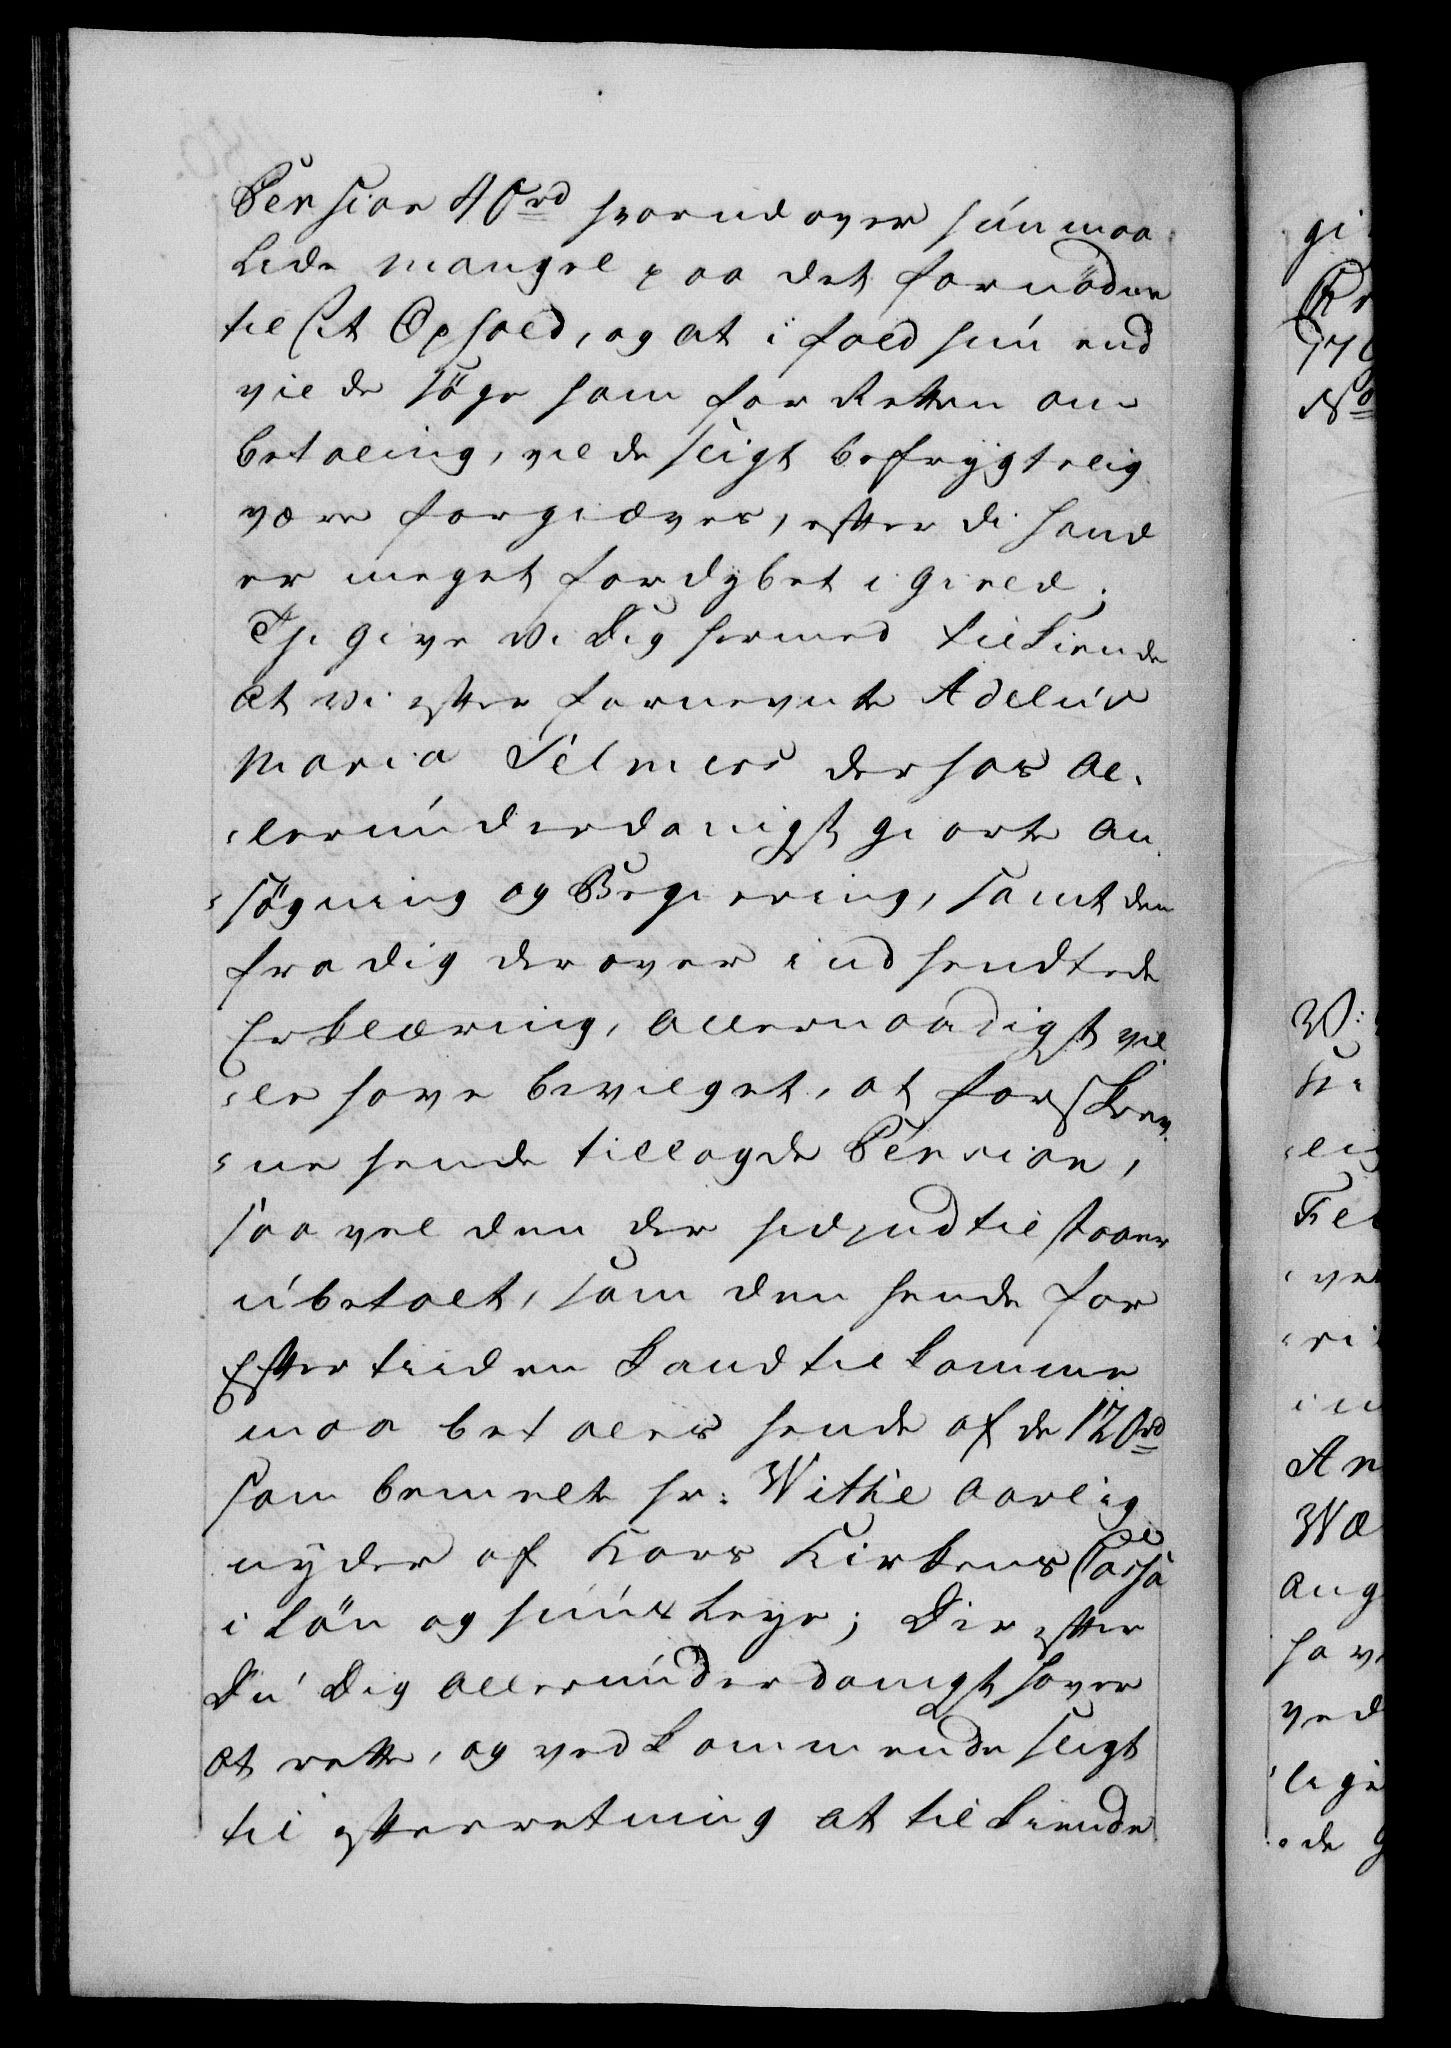 Pension 40 rd hvorudover hun maa
lide mangel paa det fornødne
til sit Ophold, og at i fald hun end
vilde søge ham for Retten om
betaling, vilde sligt befrygtelig
være forgiæves, efterdi hand
er meget fordybet i Gield;
Thi give Vi Dig hermed tilkiende
at Vi efter fornevnte Adelús
Maria Selmers derhos al-
-lerúnderdanigst giorte An-
-søgning og Begiering, samt den
fra dig derover indsendtede
Erklæring, allernaadigst vil-
-le have bevilget, at forskrev-
-ne hende tillagde Pension,
saavel den der hidindtil staaer
úbetalt, som den hende for
Eftertiden kand tilkomme
maa betales hende af de 120 rd
som bemelte Hr: Withe aarlig
nyder af Kors Kirkens Cassa
i Løn og húús Leye; Der efter
Dú Dig allerúnderdanigst haver
at rette, og vedkommende sligt
til efterretning at tilkiende
gi
Kr
Ti
-lig
Fle
-ve
-ri
in
An
Wæ
Aug
hav
ved
lige
-de G